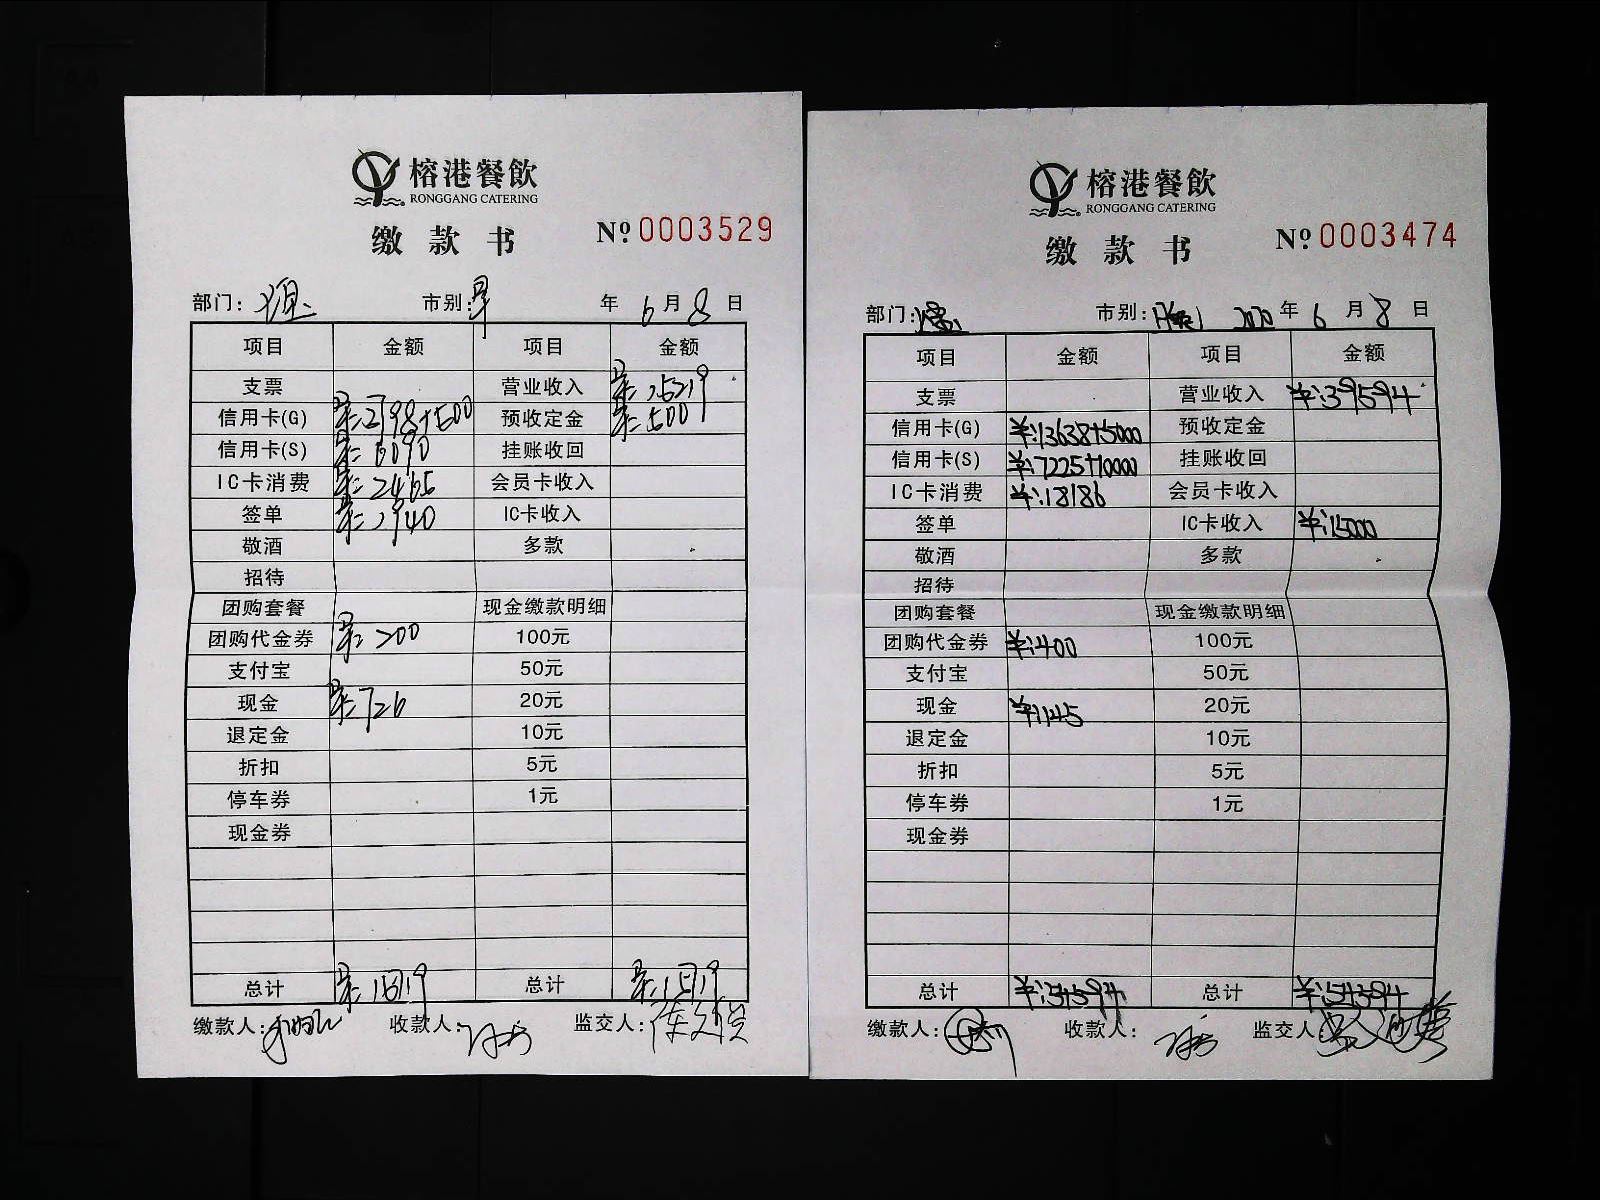 榕港餐飲
RONGGANG CATERING
缴款书
№ 0003529
部门: 市别: 早 年 6 月 8 日
项目 金额 项目 金额
支票 营业收入
信用卡(G) 2798+500 预收定金 500
信用卡(S) 6090 挂账收回
IC卡消费 2465 会员卡收入
签单 2940 IC卡收入
敬酒 多款
招待
团购套餐 现金缴款明细
团购代金券 200 100元
支付宝 50元
现金 726 20元
退定金 10元
折扣 5元
停车券 1元
现金券
总计 总计
缴款人: 收款人: 监交人:
榕港餐飲
RONGGANG CATERING
缴款书
№ 0003474
部门: 市别: 2020 年 6 月 8 日
项目 金额 项目 金额
支票 营业收入 ¥:39594
信用卡(G) ¥:13638+5000 预收定金
信用卡(S) ¥:7225+10000 挂账收回
IC卡消费 ¥:18186 会员卡收入
签单 IC卡收入 ¥:15000
敬酒 多款
招待
团购套餐 现金缴款明细
团购代金券 ¥:400 100元
支付宝 50元
现金 ¥:145 20元
退定金 10元
折扣 5元
停车券 1元
现金券
总计 ¥:54594 总计 ¥:54594
缴款人: 收款人: 监交人